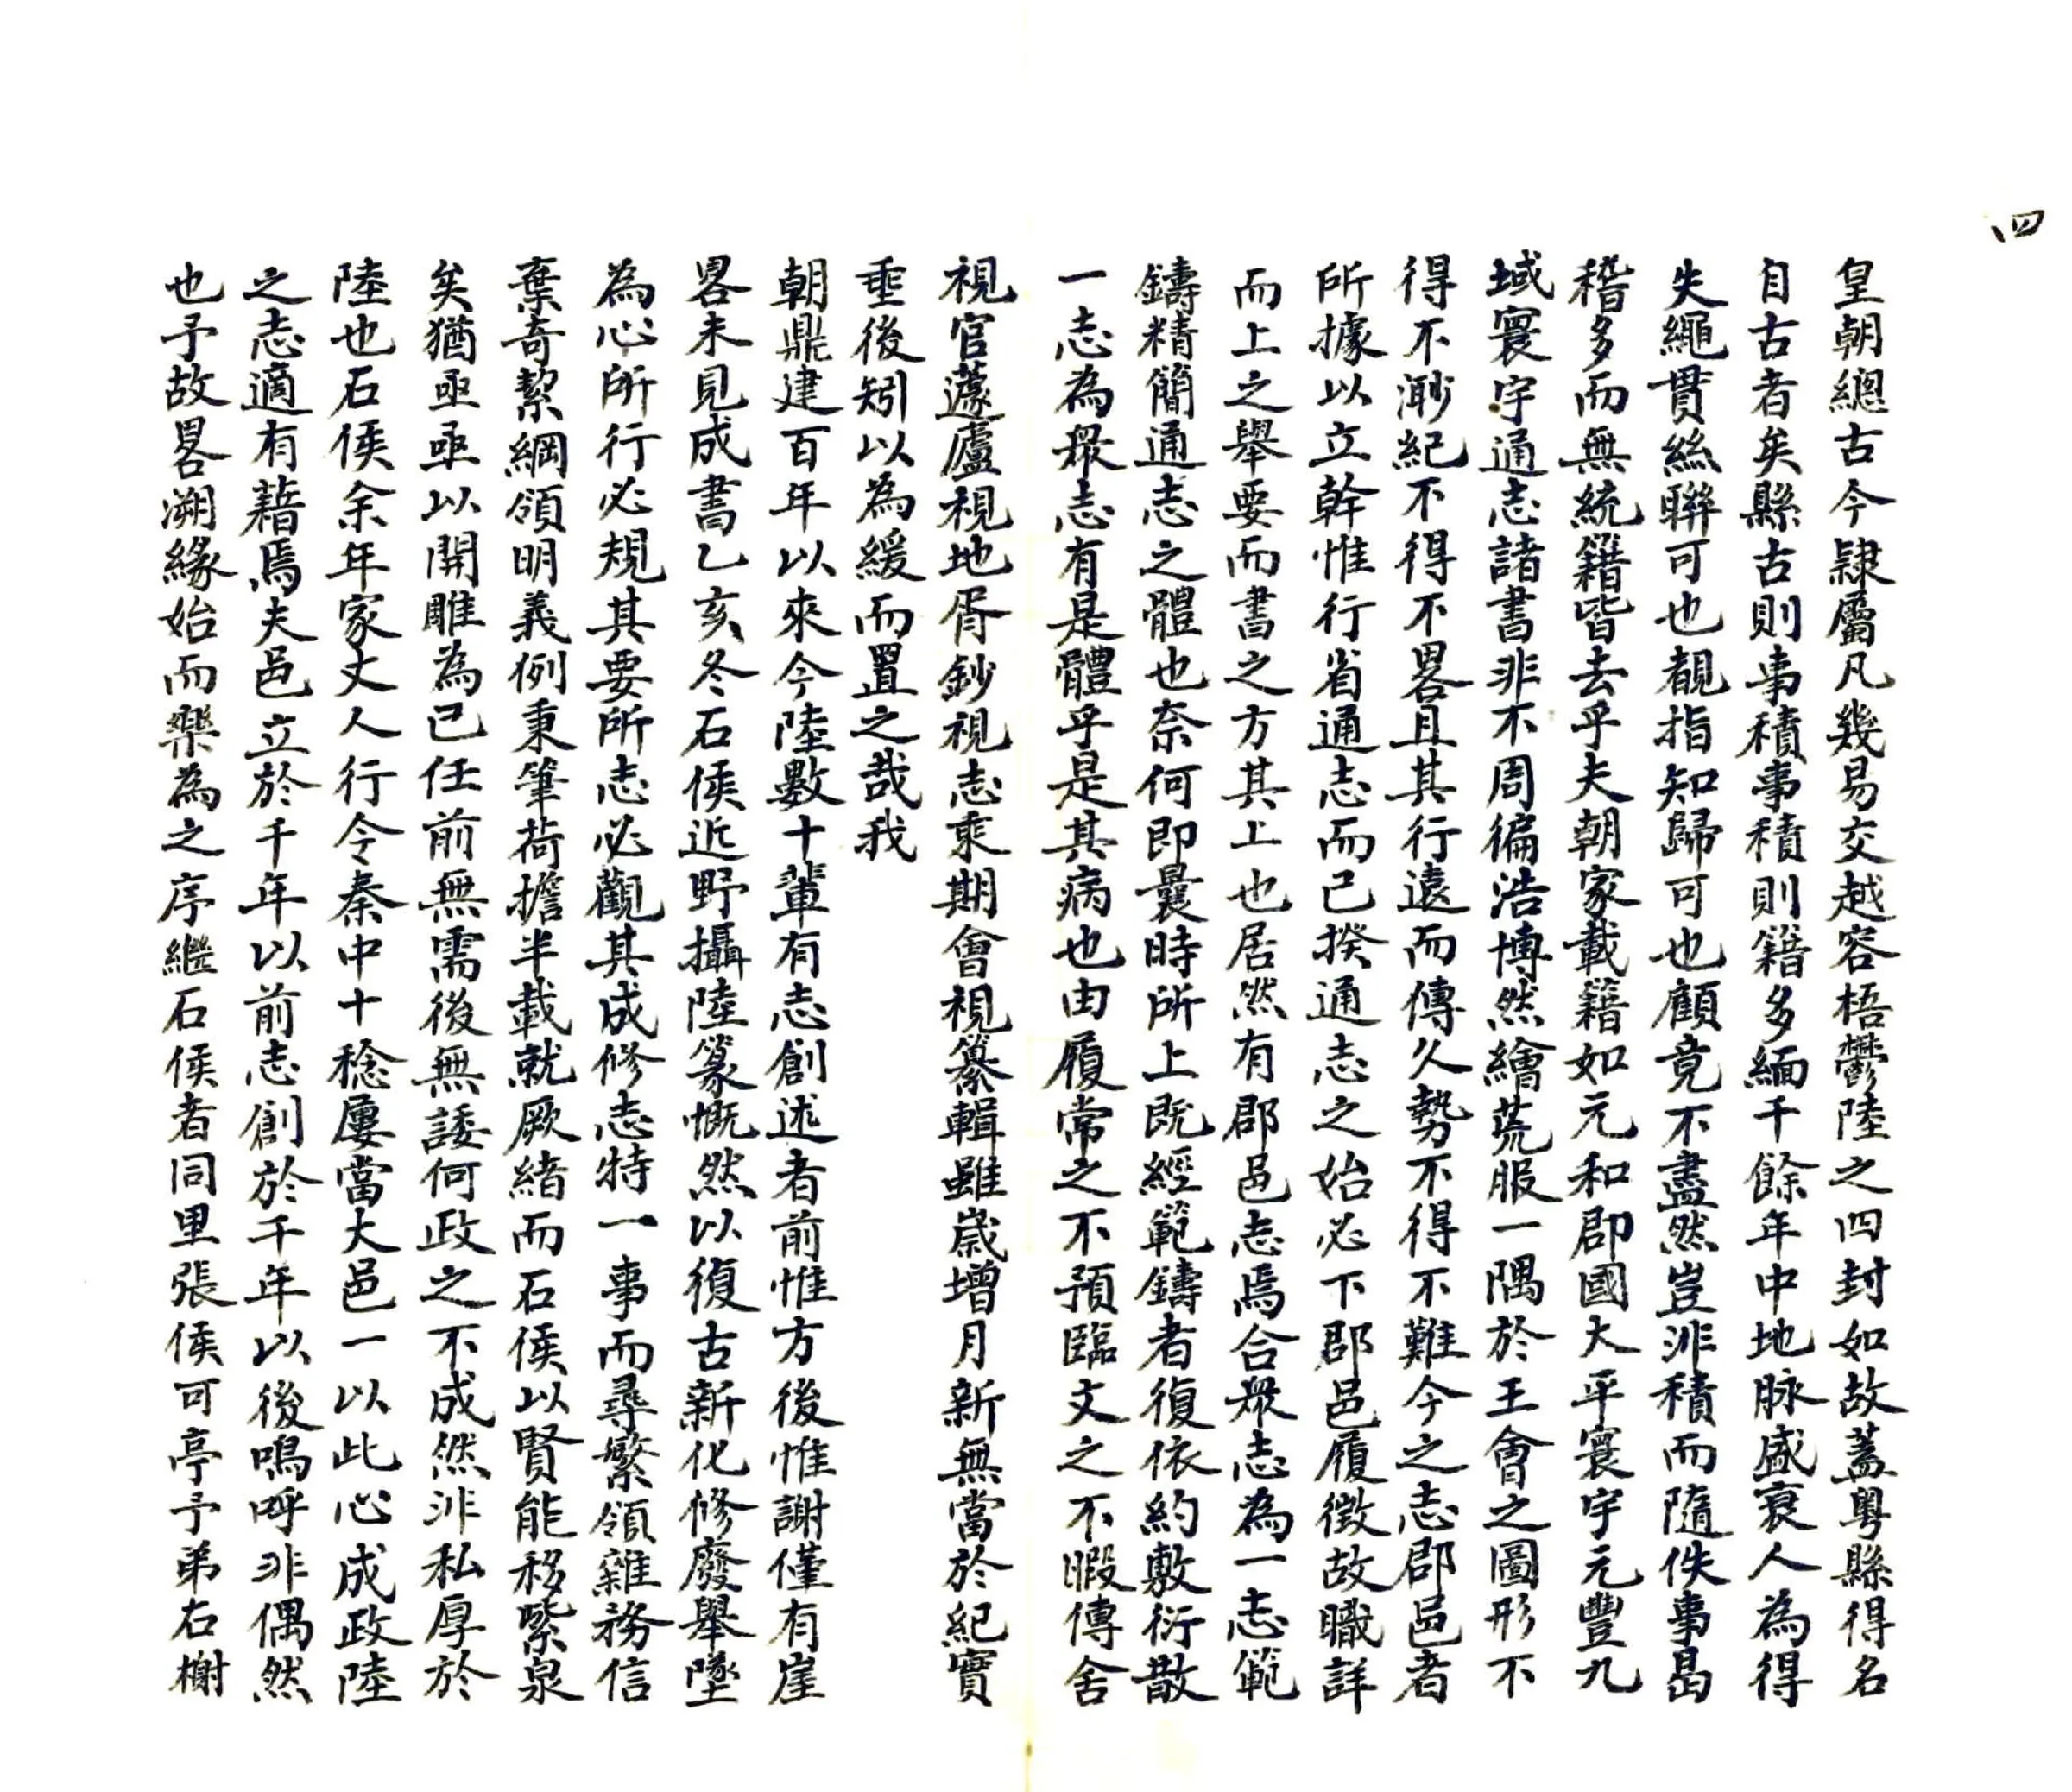 四
皇朝總古今隷屬凡幾易交越容梧鬱陸之四封如故蓋粤縣得名
自古者矣縣古則事積事積則籍多緬千餘年中地脉盛衰人為得
失繩貫絲聯可也覩指知歸可也顧竟不盡然豈非積而隨佚事曷
稽多而無統籍皆去乎夫朝家載籍如元和郡國大平寰宇元豐九
域寰宇通志諸書非不周徧浩博然繪荒服一隅於王會之圖形不
得不渺紀不得不畧且其行遠而傳久勢不得不難今之志郡邑者
所據以立幹惟行省通志而已揆通志之始必下郡邑履徵故職詳
而上之舉要而書之方其上也居然有郡邑志焉合衆志為一志範
鑄精簡通志之體也奈何即曩時所上既經範鑄者復依約敷衍散
一志為衆志有是體乎是其病也由履常之不預臨文之不暇傳舍
視官蘧廬視地胥鈔視志乘期會視纂輯雖歲增月新無當於紀實
垂後矧以為緩而置之哉我
朝鼎建百年以來今陸數十輩有志創述者前惟方後惟謝僅有崖
畧未見成書乙亥冬石侯近野攝陸篆慨然以復古新化修廢舉墜
為心所行必規其要所志必觀其成修志特一事而尋繁領雜務信
棄奇絜綱領明義例秉筆荷擔半載就厥緒而石侯以賢能移縈泉
矣猶亟亟以開雕為己任前無需後無諉何政之不成然非私厚於
陸也石侯余年家丈人行令秦中十稔屢當大邑一以此心成政陸
之志適有藉焉夫邑立於千年以前志創於千年以後嗚呼非偶然
也予故畧溯緣始而樂為之序繼石侯者同里張侯可亭予弟右榭